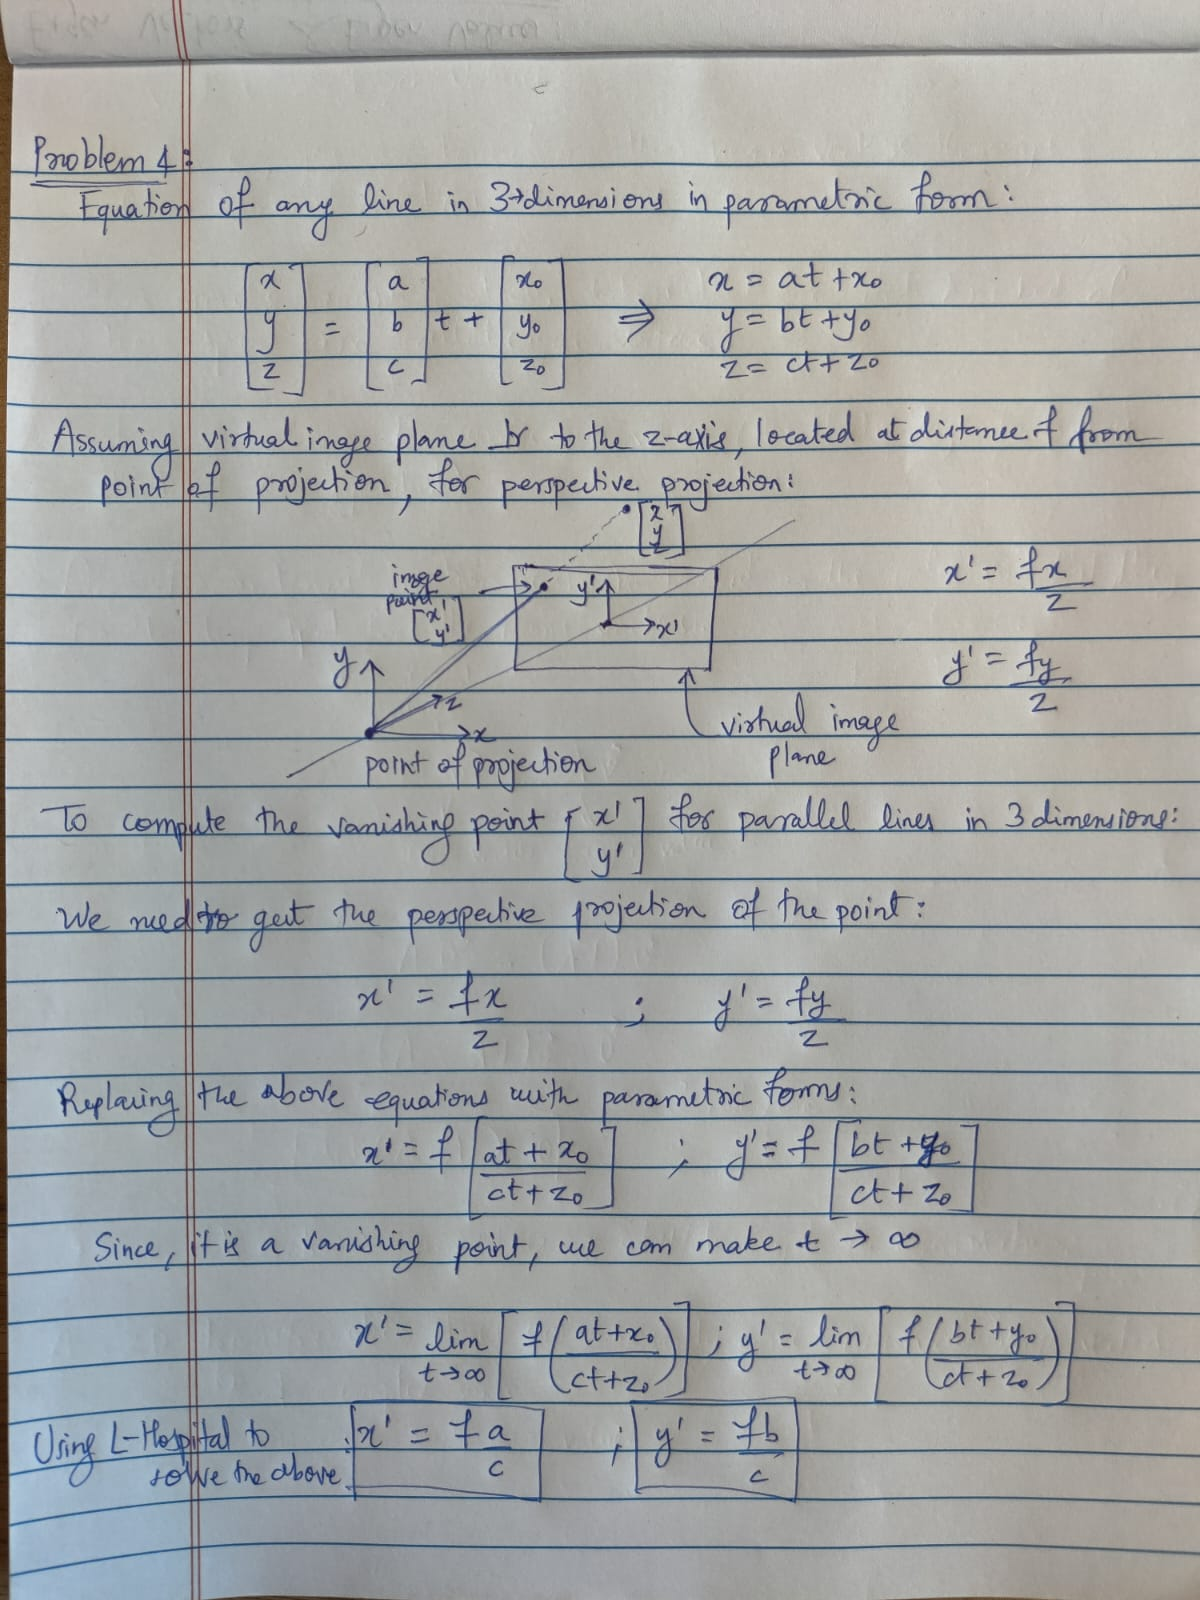 Problem 4:
Equation of any line in 3-dimensions in parametric form:
[x y z] = [a b c] t + [x₀ y₀ z₀] ⇒ x = at + x₀
y = bt + y₀
z = ct + z₀
Assuming virtual image plane ⊥r to the z-axis, located at distance f from
point of projection, for perspective projection:
[x y z]
image
point
[x' y']
y'
x'
x' = fx/z
y' = fy/z
y
z
x
virtual image
plane
point of projection
To compute the vanishing point [x' y'] for parallel lines in 3 dimensions:
We need to get the perspective projection of the point:
x' = fx/z ; y' = fy/z
Replacing the above equations with parametric forms:
x' = f [(at + x₀)/(ct + z₀)] ; y' = f [(bt + y₀)/(ct + z₀)]
Since, it is a vanishing point, we can make t → ∞
x' = lim t→∞ [f ((at+x₀)/(ct+z₀))] ; y' = lim t→∞ [f ((bt+y₀)/(ct+z₀))]
Using L-Hospital to
solve the above
x' = f a/c ; y' = fb/c